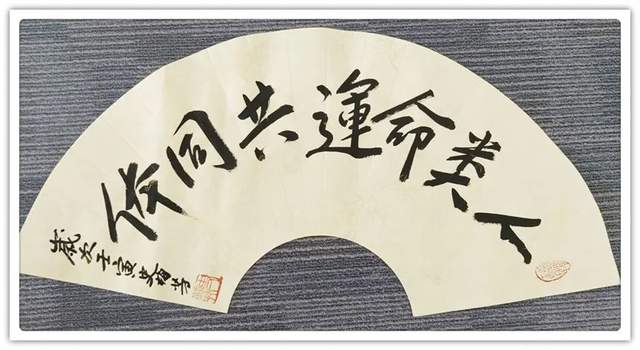 人类命運共同体
歲次壬寅